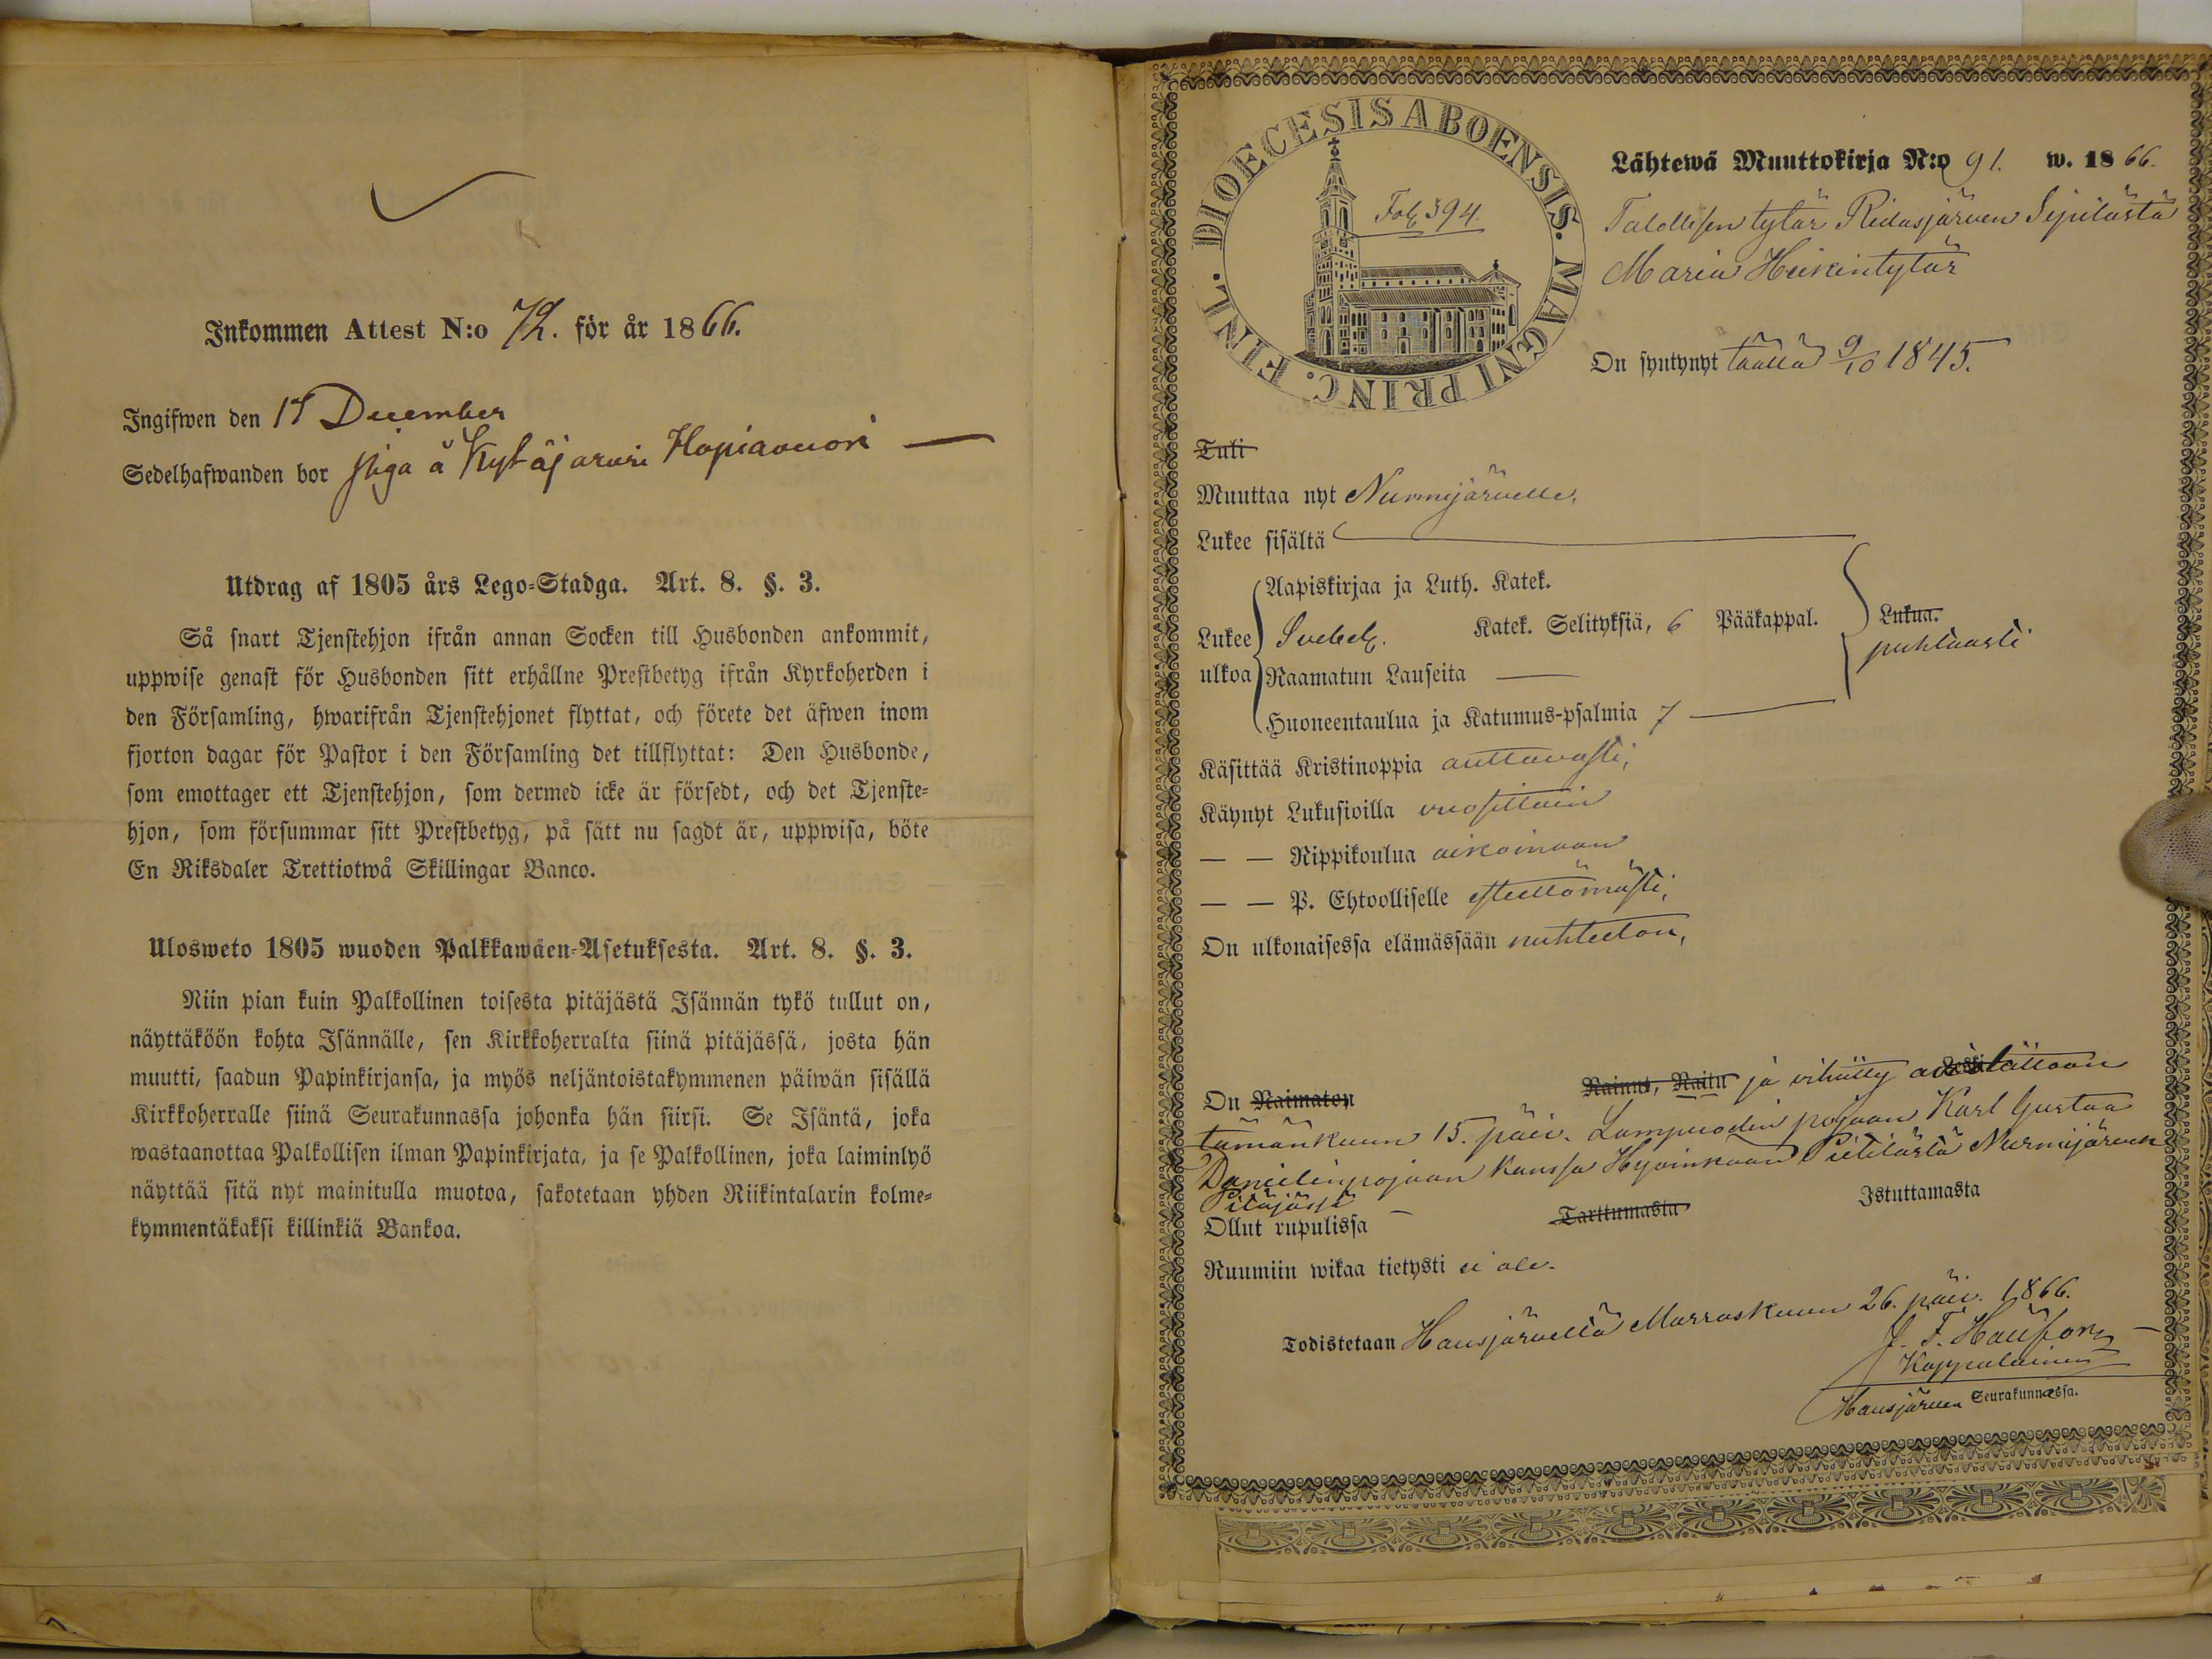 Inkommen Attest N:o 72. för år 1866.
Ingifwen den 17 December
Sedelhafwanden bor piga å Kytäjärwi Hopiavuori —
Utdrag af 1805 års Lego=Stadga. Art. 8. §. 3.
Så snart Tjenstehjon ifrån annan Socken till Husbonden ankommit,
uppwise genast för Husbonden sitt erhållne Prestbetyg ifrån Kyrkoherden i
den Församling, hwarifrån Tjenstehjonet flyttat, och förete det äfwen inom
fjorton dagar för Pastor i den Församling det tillflyttat: Den Husbonde,
som emottager ett Tjenstehjon, som dermed icke är försedt, och det Tjenste=
hjon, som försummar sitt Prestbetyg, på sätt nu sagdt är, uppwisa, böte
En Riksdaler Trettiotwå Skillingar Banco.
Ulosweto 1805 wuoden Palkkawäen=Asetuksesta. Art. 8. §. 3.
Niin pian kuin Palkollinen toisesta pitäjästä Isännän tykö tullut on,
näyttäköön kohta Isännälle, sen Kirkkoherralta siinä pitäjässä, josta hän
muutti, saadun Papinkirjansa, ja myös neljäntoistakymmenen päiwän sisällä
Kirkkoherralle siinä Seurakunnassa johonka hän siirsi. Se Isäntä, joka
wastaanottaa Palkollisen ilman Papinkirjata, ja se Palkollinen, joka laiminlyö
näyttää sitä nyt mainitulla muotoa, sakotetaan yhden Riikintalarin kolme=
kymmentäkaksi killinkiä Bankoa.
DIOECESIS ABOENSIS. MAGNI PRINC. FINL.
Fol 394
Lähtewä Muuttokirja N:o 91. w. 1866.
Talollisen tytär Ridasjärven Sepilästä
Maria Heikintytär
On syntynyt täällä 9/10 1845.
Tuli
Muuttaa nyt Nurmijärvelle.
Lukee sisältä
Lukee ulkoa
Aapiskirjaa ja Luth. Katek.
Svebel. Katek. Selityksiä, 6 Pääkappal.
Raamatun Lauseita —
Huoneentaulua ja Katumus-psalmia 7 —
Lukua.
puhtaasti
Käsittää Kristinoppia auttavasti,
Käynyt Lukusioilla vuosittain
— — Rippikoulua aikoinaan
— — P. Ehtoolliselle esteettömästi,
On ulkonaisessa elämässään nuhteeton,
On Naimaton Nainut, Naitu ja vihitty Leski
tämänkuun 15. päiv. Lampuodin pojaan Karl Gustaa
Danielinpojaan kanssa Hyvinkään Pietilästä Nurmijärven
Pitäjässä
Ollut rupulissa — Tarttumasta Istuttamasta
Ruumiin wikaa tietysti ei ole.
Todistetaan Hausjärvellä Marraskuun 26. päiv. 1866.
J. F. Hallfors
Kappalainen
Hausjärven Seurakunnassa.